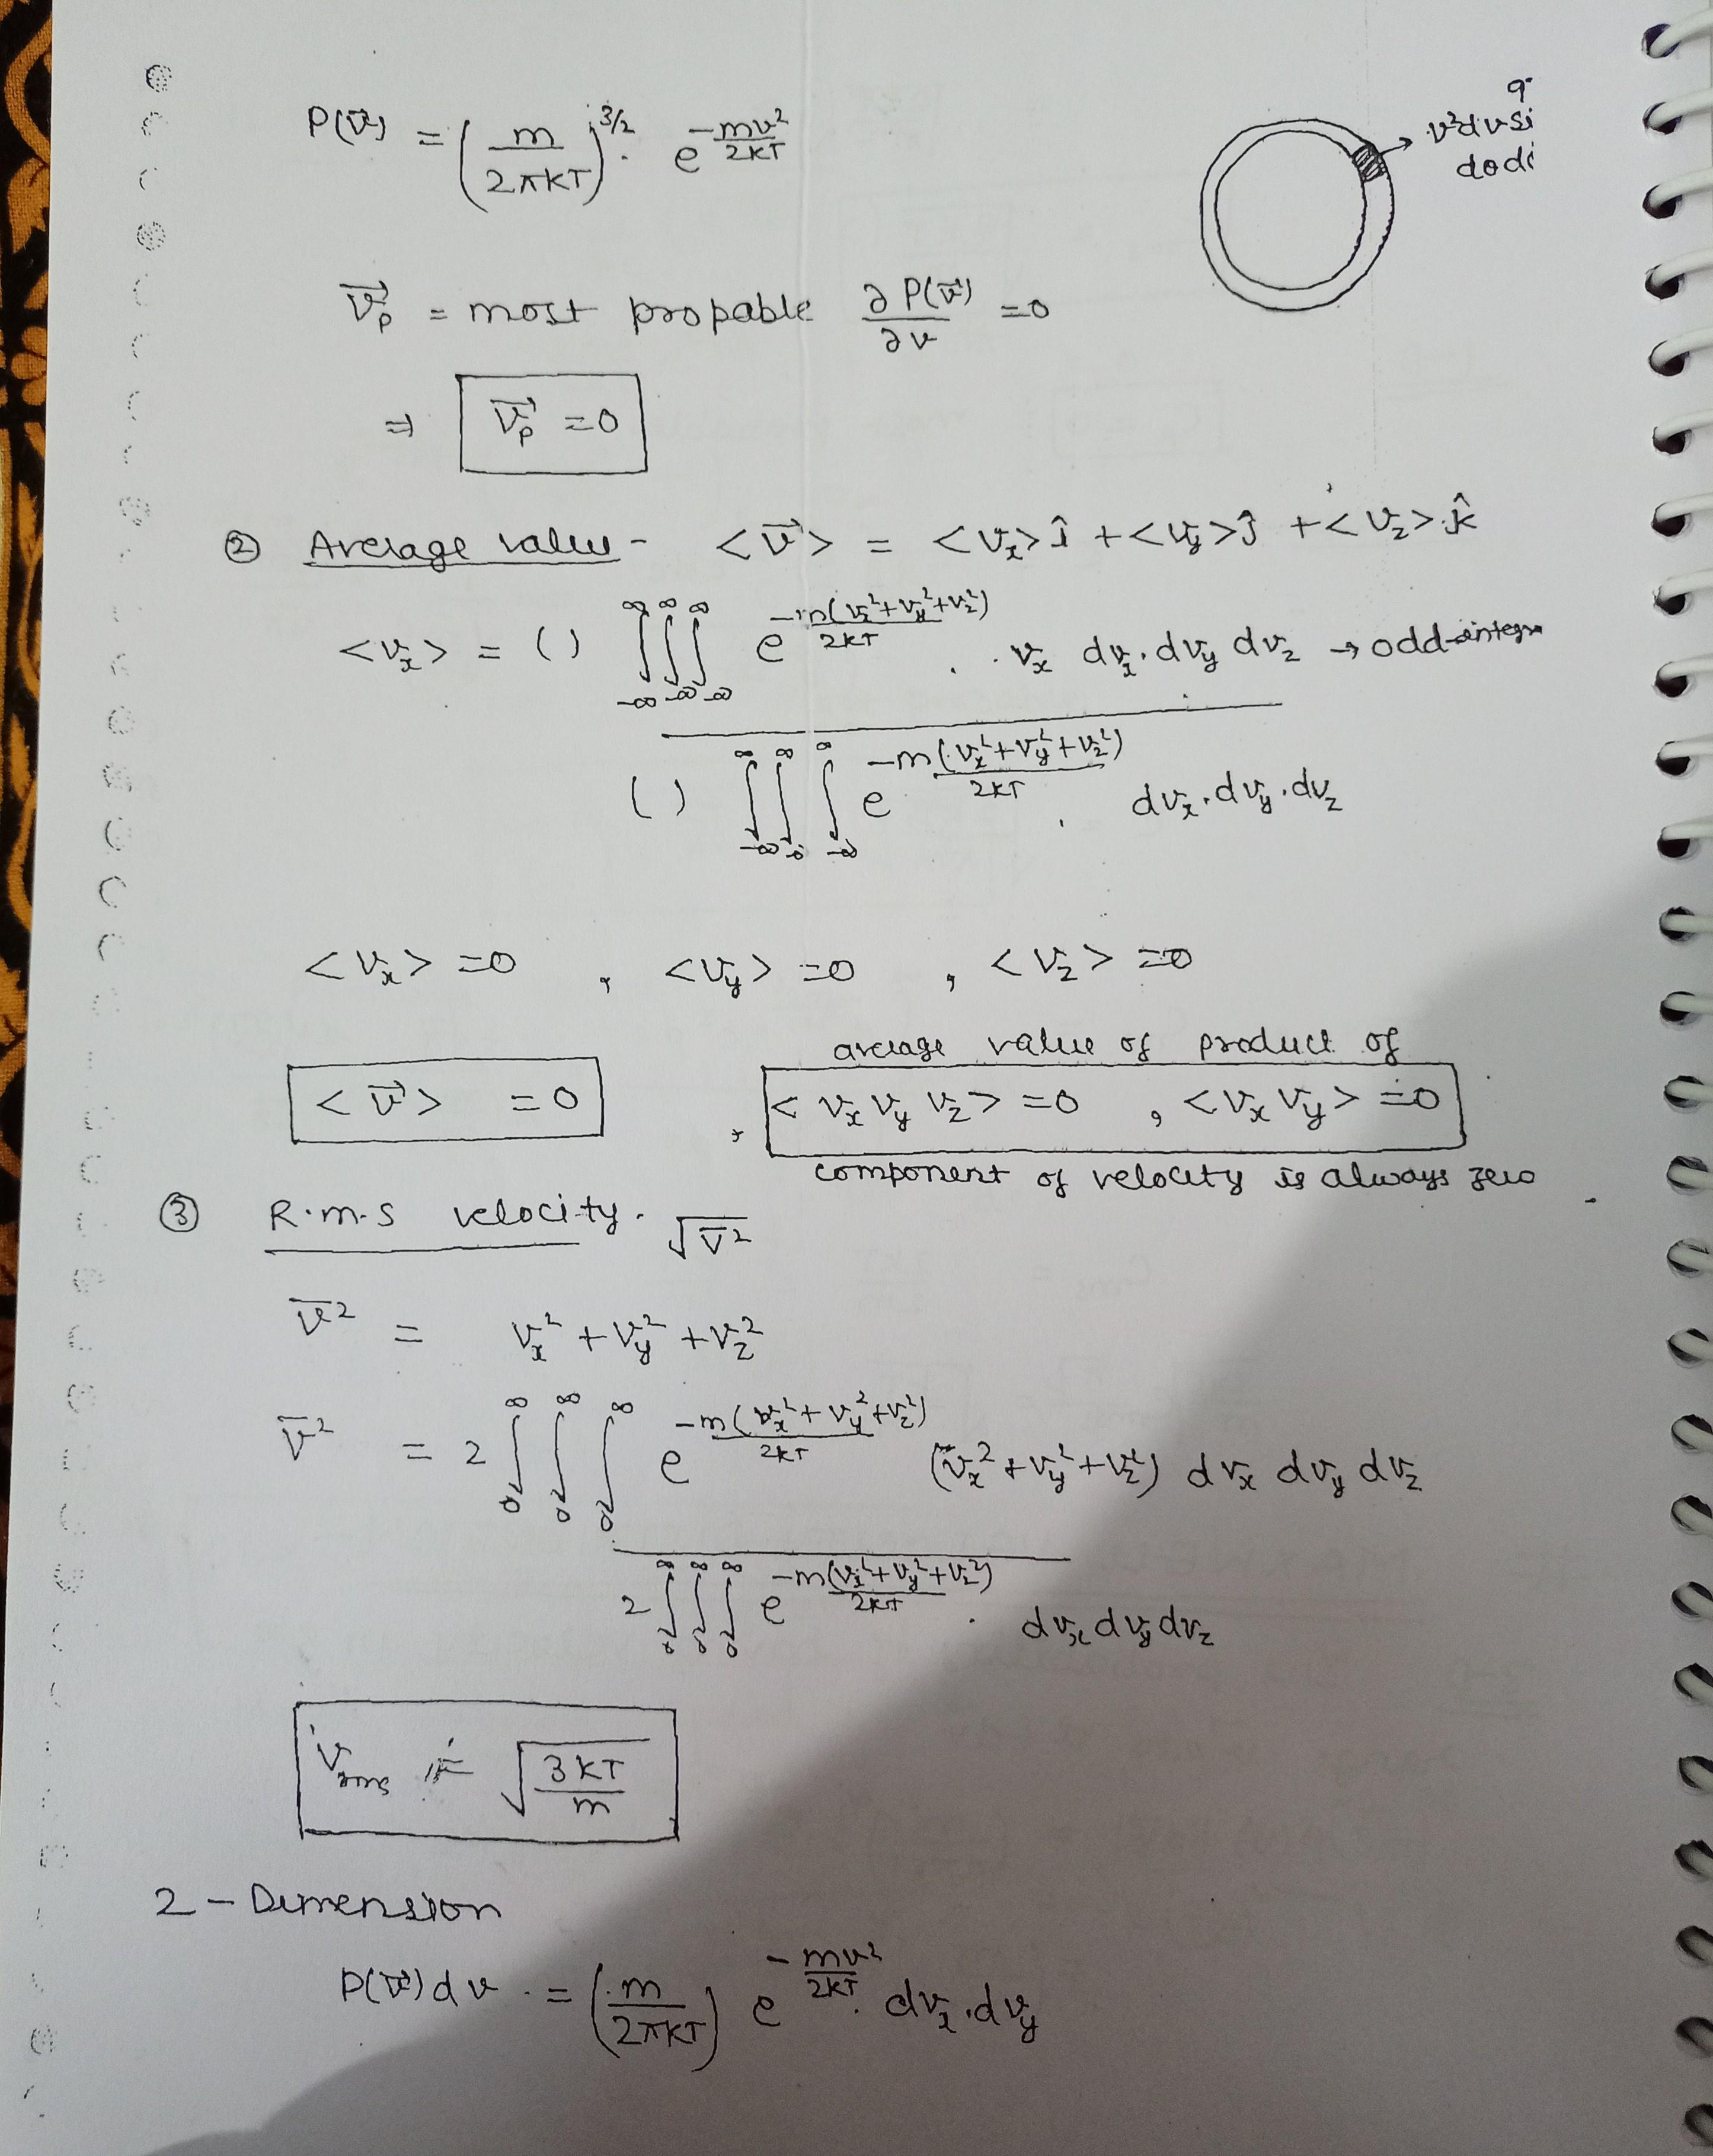 P(v⃗) = (m/2πKT)^3/2 . e^-mv²/2KT
v²dvsi
dθd
v⃗p = most propable ∂P(v⃗)/∂v =0
⇒ v⃗p =0
② Average value - <v⃗> = <vx>î + <vy>ĵ + <vz>k̂
<vx> = ( ) ∫∫∫ -∞ ∞ e^-m(vx²+vy²+vz²)/2KT . vx dvx.dvy dvz → odd-integr
( ) ∫∫∫ -∞ ∞ e^-m(vx²+vy²+vz²)/2KT . dvx.dvy.dvz
<vx> =0 , <vy> =0 , <vz> =0
average value of product of
<v⃗> =0 , <vx vy vz> =0 , <vx vy> =0
component of velocity is always zero
③ R.m.s velocity. √v̄²
v̄² = vx² + vy² + vz²
v̄² = 2 ∫∫∫ 0 ∞ e^-m(vx²+vy²+vz²)/2KT (vx²+vy²+vz²) dvx dvy dvz
2 ∫∫∫ 0 ∞ e^-m(vx²+vy²+vz²)/2KT . dvx dvy dvz
vrms = √3KT/m
2 - Dimension
P(v⃗)dv = (m/2πKT) e^-mv²/2KT . dvx.dvy